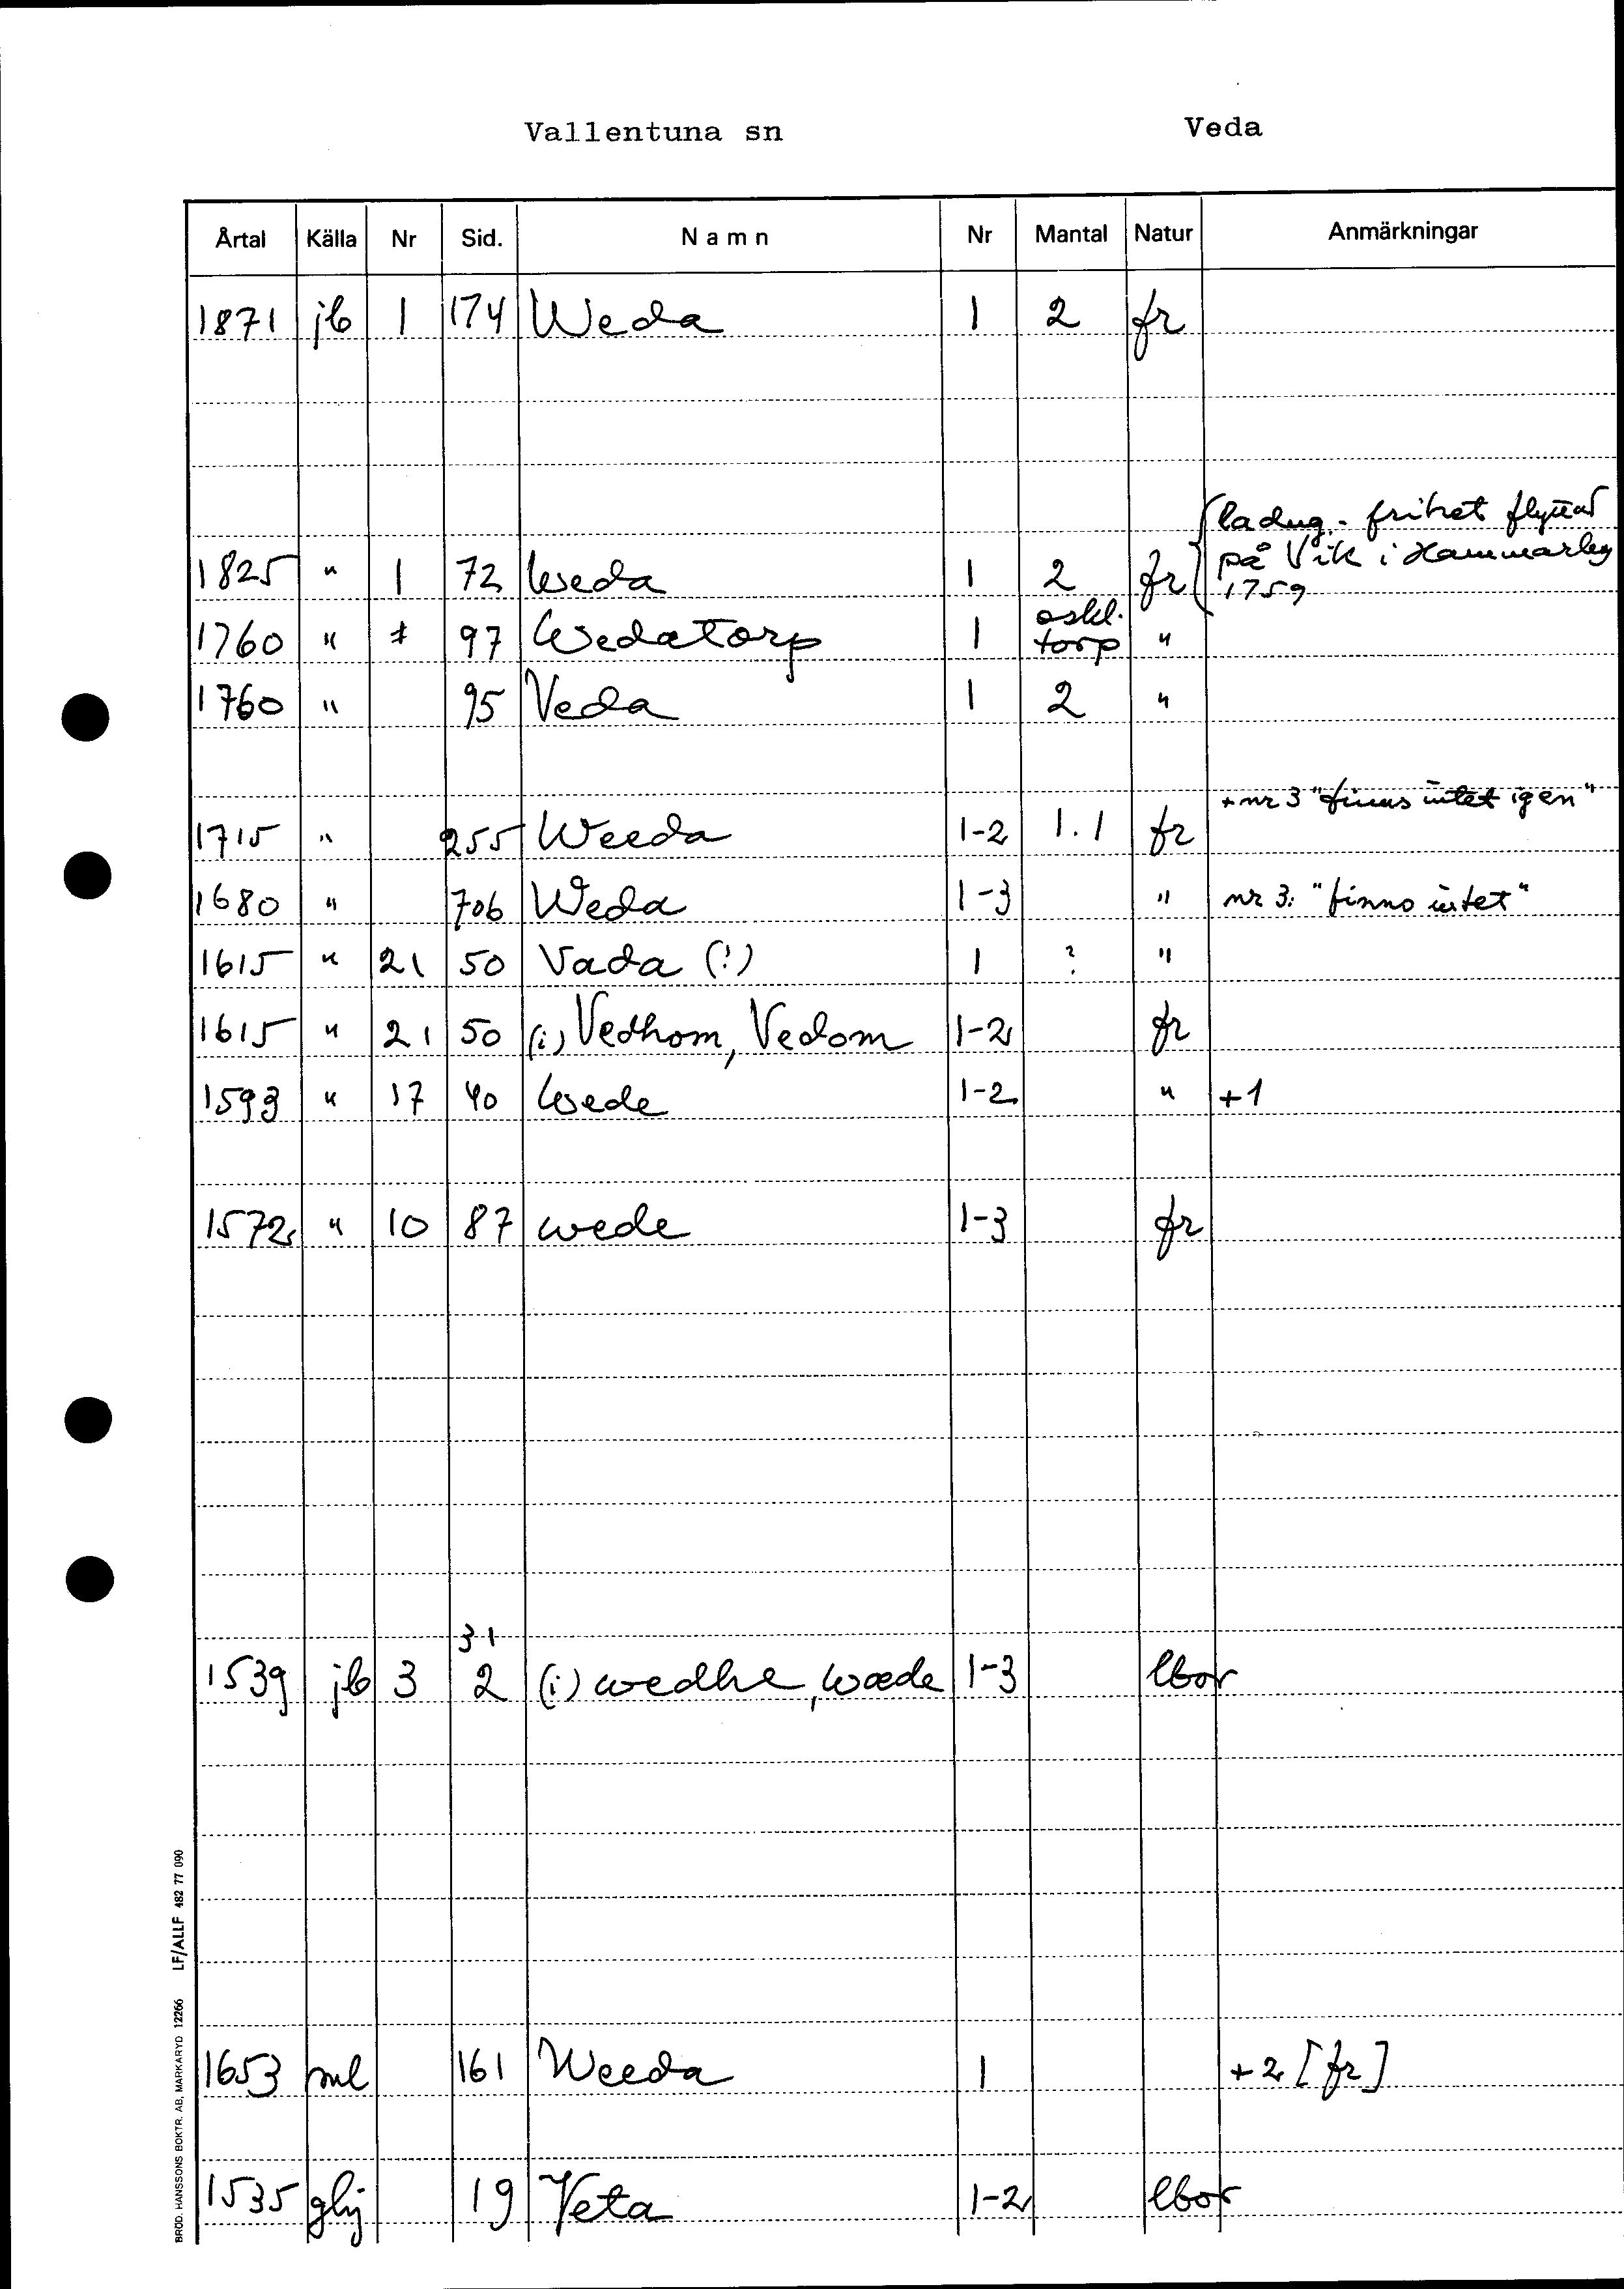 Vallentuna sn Veda
Årtal Källa Nr Sid. Namn Nr Mantal Natur Anmärkningar
1871 jb 1 174 Weda 1 2 fr
ladug. frihet flyttad
på Vik i Hammarby
1759
1825 " 1 72 Weda 1 2 fr
oskl.
1760 " 97 Wedatorp 1 torp "
1760 " 95 Veda 1 2 "
+ nr 3 "finns intet igen"
1715 " 255 Weeda 1-2 1.1 fr
1680 " 706 Weda 1-3 " nr 3: "finns intet"
1615 " 21 50 Vada (!) 1 ? "
1615 " 21 50 (i) Vedhom, Vedom 1-2 fr
1593 " 17 40 Wede 1-2 " +1
1572 " 10 87 wede 1-3 fr
31
1539 jb 3 2 (i) wedhe, wæde 1-3 lbor
1653 ml 161 Weeda 1 +2 [fr]
1535 ghj 19 Veta 1-2 lbor
BRÖD. HANSSONS BOKTR. AB, MARKARYD 12266 LF/ALLF 482 77 090